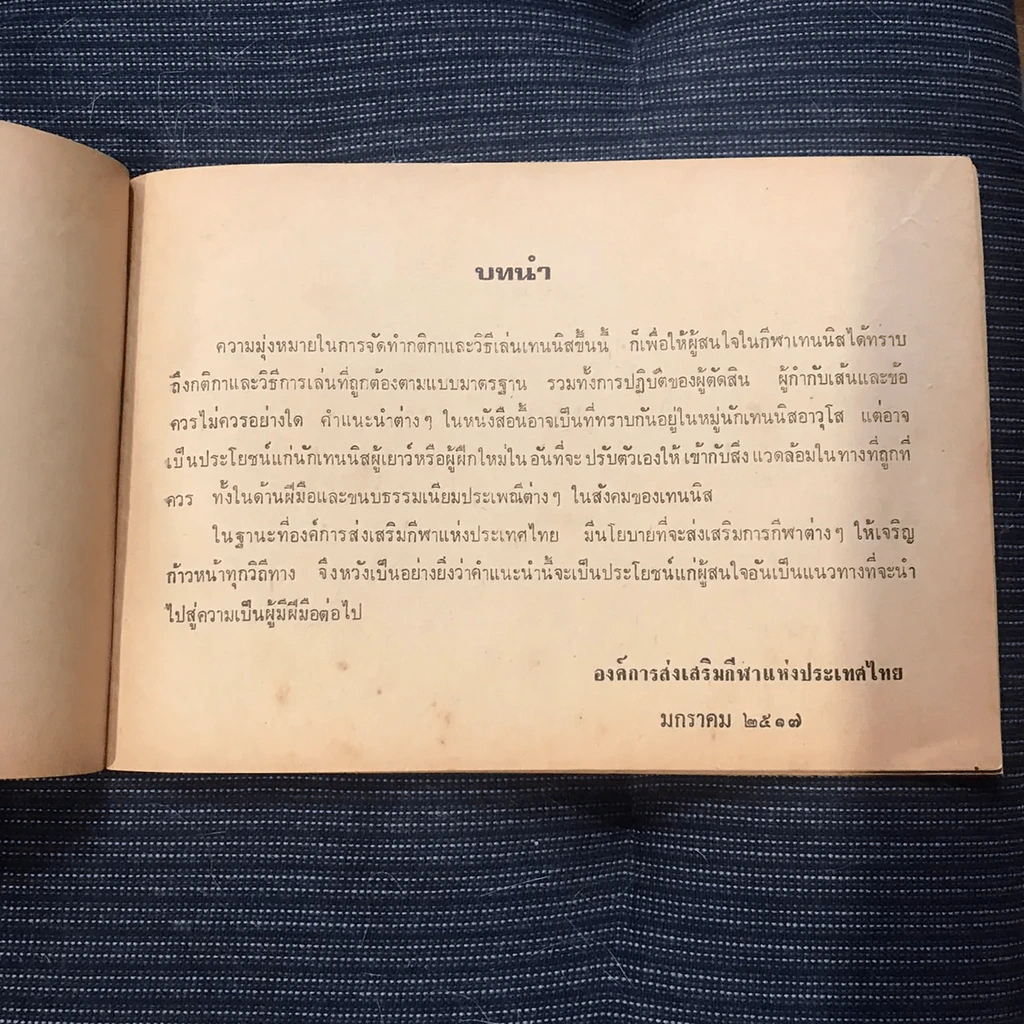 บทนำ
ความมุ่งหมายในการจัดทำกติกาและวิธีเล่นเทนนิสขึ้นนี้ ก็เพื่อให้ผู้สนใจในกีฬาเทนนิสได้ทราบ
ถึงกติกาและวิธีการเล่นที่ถูกต้องตามแบบมาตรฐาน รวมทั้งการปฏิบัติของผู้ตัดสิน ผู้กำกับเส้นและข้อ
ควรไม่ควรอย่างใด คำแนะนำต่างๆ ในหนังสือนี้อาจเป็นที่ทราบกันอยู่ในหมู่นักเทนนิสอาวุโส แต่อาจ
เป็นประโยชน์แก่นักเทนนิสผู้เยาว์หรือผู้ฝึกใหม่ใน อันที่จะ ปรับตัวเองให้ เข้ากับสิ่ง แวดล้อมใน ทางที่ถูกที่
ควร ทั้งในด้านฝีมือและขนบธรรมเนียมประเพณีต่างๆ ในสังคมของเทนนิส
ในฐานะที่องค์การส่งเสริมกีฬาแห่งประเทศไทย มีนโยบายที่จะส่งเสริมการกีฬาต่างๆ ให้เจริญ
ก้าวหน้าทุกวิถีทาง จึงหวังเป็นอย่างยิ่งว่าคำแนะนำนี้จะเป็นประโยชน์แก่ผู้สนใจอันเป็นแนวทางที่จะนำ
ไปสู่ความเป็นผู้มีฝีมือต่อไป
องค์การส่งเสริมกีฬาแห่งประเทศไทย
มกราคม ๒๕๑๗